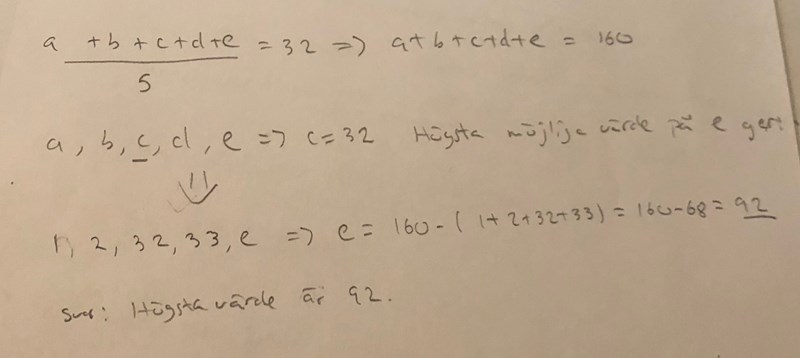 a + b + c + d + e / 5 = 32 => a + b + c + d + e = 160
a, b, c, d, e => c = 32 Högsta möjliga värde på e ger:
1, 2, 32, 33, e => e = 160 - (1 + 2 + 32 + 33) = 160 - 68 = 92
Svar: Högsta värde är 92.